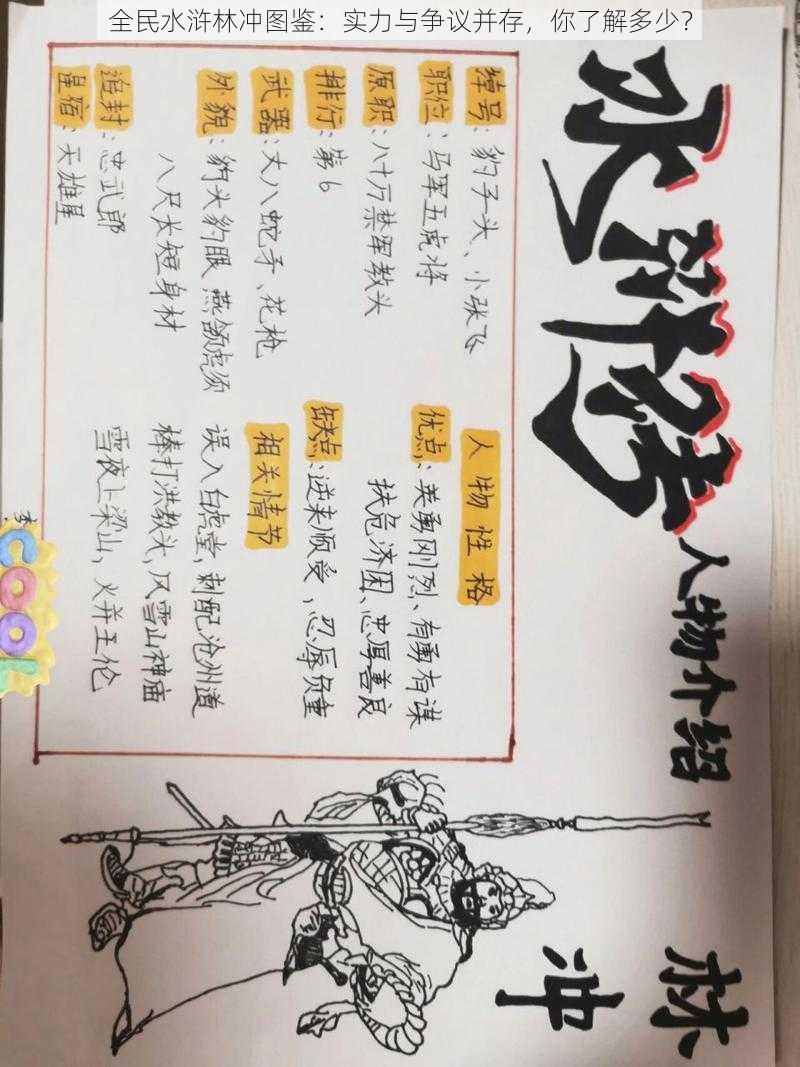 全民水浒林冲图鉴：实力与争议并存，你了解多少？
水浒传人物介绍
林冲
绰号：豹子头、小张飞
职位：马军五虎将
原职：八十万禁军教头
排行：第6
武器：丈八蛇矛、花枪
外貌：豹头豹眼 燕颔虎须
八尺长短身材
追封：忠武郎
星宿：天雄星
人物性格
优点：英勇刚烈、有勇有谋
扶危济困、忠厚善良
缺点：逆来顺受，忍辱负重
相关情节
误入白虎堂，刺配沧州道
棒打洪教头，风雪山神庙
雪夜上梁山，火并王伦
李
COOL